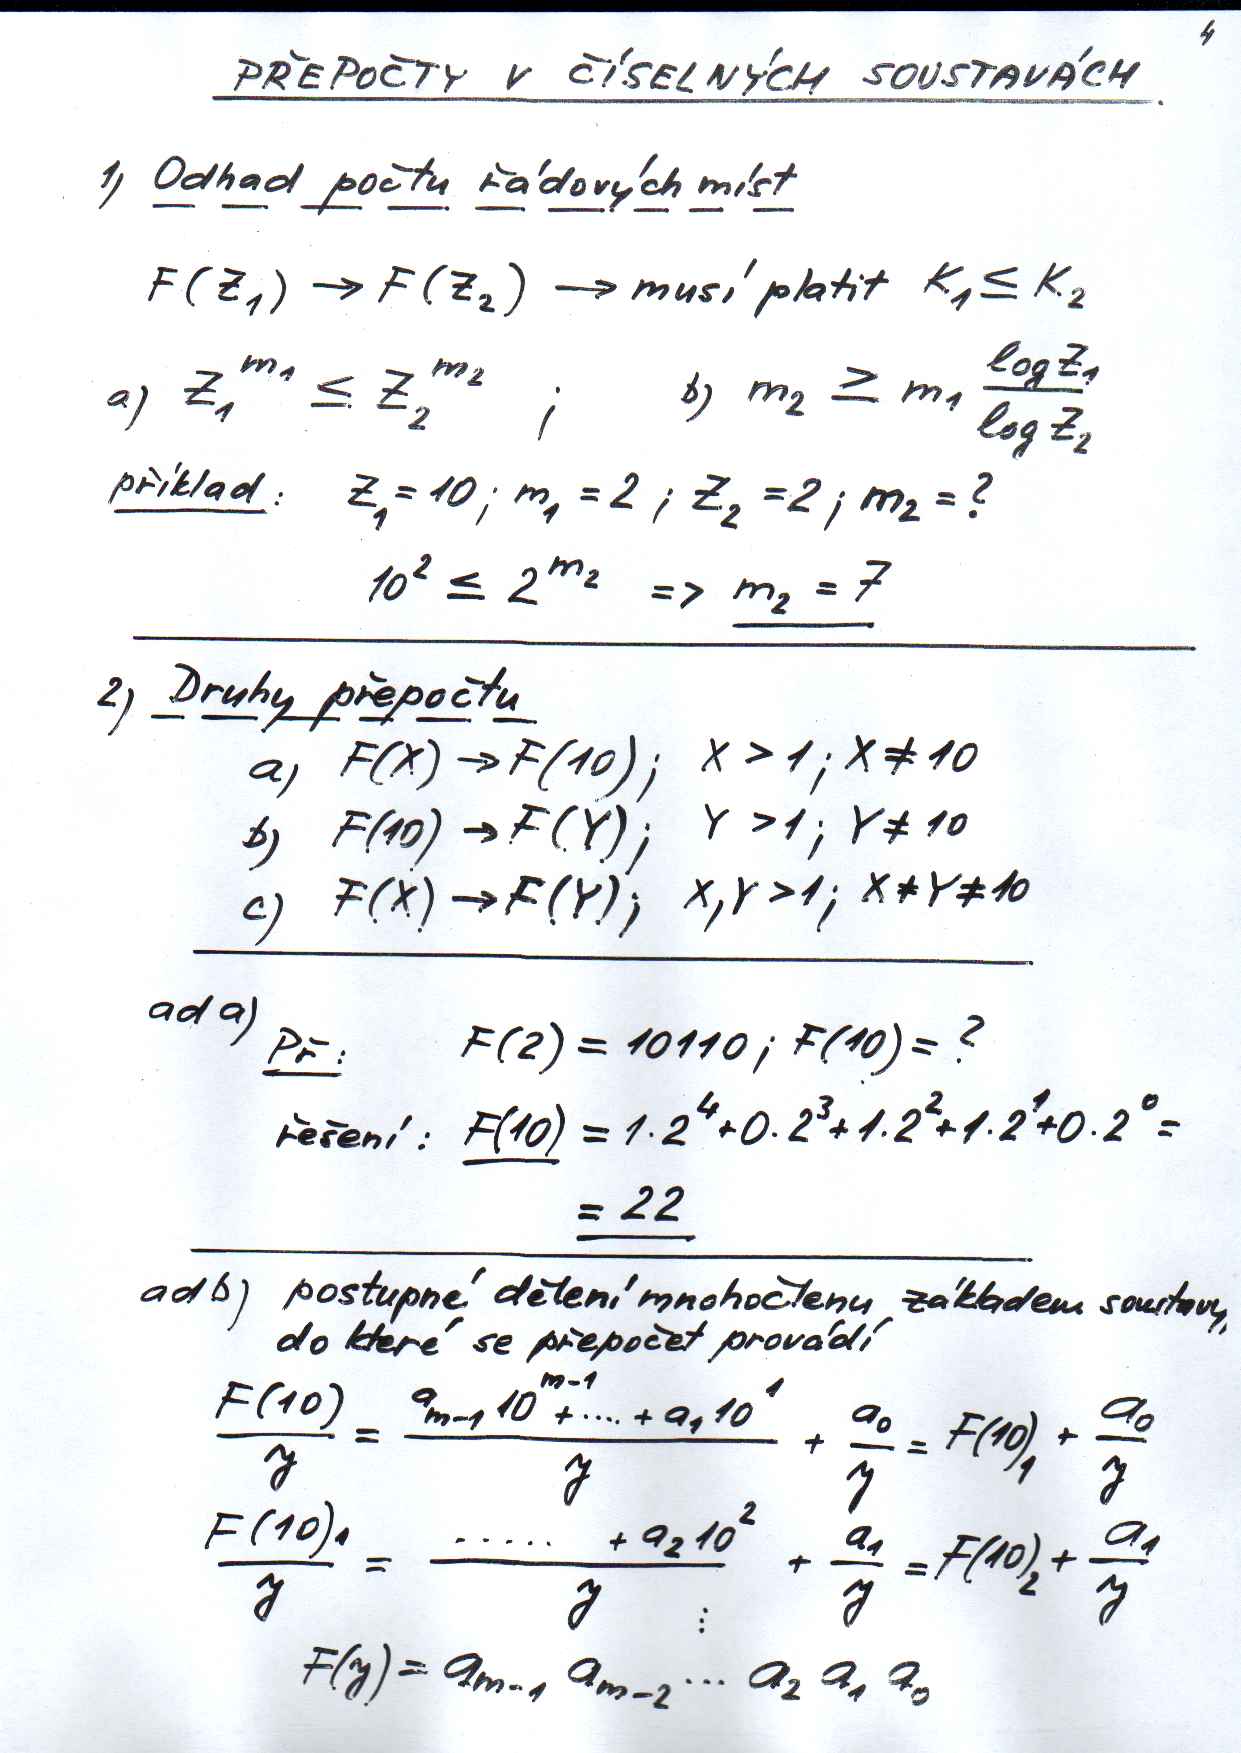 4
PŘEPOČTY V ČÍSELNÝCH SOUSTAVÁCH
1) Odhad počtu řádových míst
F(Z₁) → F(Z₂) → musí platit K₁ ≤ K₂
a) Z₁^m₁ ≤ Z₂^m₂ ; b) m₂ ≥ m₁ log Z₁ / log Z₂
příklad: Z₁ = 10 ; m₁ = 2 ; Z₂ = 2 ; m₂ = ?
10² ≤ 2^m₂ => m₂ = 7
2) Druhy přepočtu
a) F(X) → F(10) ; X > 1 ; X ≠ 10
b) F(10) → F(Y) ; Y > 1 ; Y ≠ 10
c) F(X) → F(Y) ; X, Y > 1 ; X ≠ Y ≠ 10
ad a)
Př: F(2) = 10110 ; F(10) = ?
řešení: F(10) = 1.2⁴+0.2³+1.2²+1.2¹+0.2⁰ =
= 22
ad b) postupné dělení mnohočlenu základem soustavy,
do které se přepočet provádí
F(10)/y = (a_m-1 10^m-1 + .... + a₁ 10¹)/y + a₀/y = F(10)₁ + a₀/y
F(10)₁/y = (...... + a₂ 10²)/y + a₁/y = F(10)₂ + a₁/y
⋮
F(y) = a_m-1 a_m-2 ... a₂ a₁ a₀